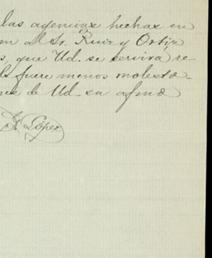 las agencias hechas en
n M. Sr. Ruiz y Ortiz
s, que Ud. se servirá re-
le fuere menos molesto
de Ud. su afmo
López